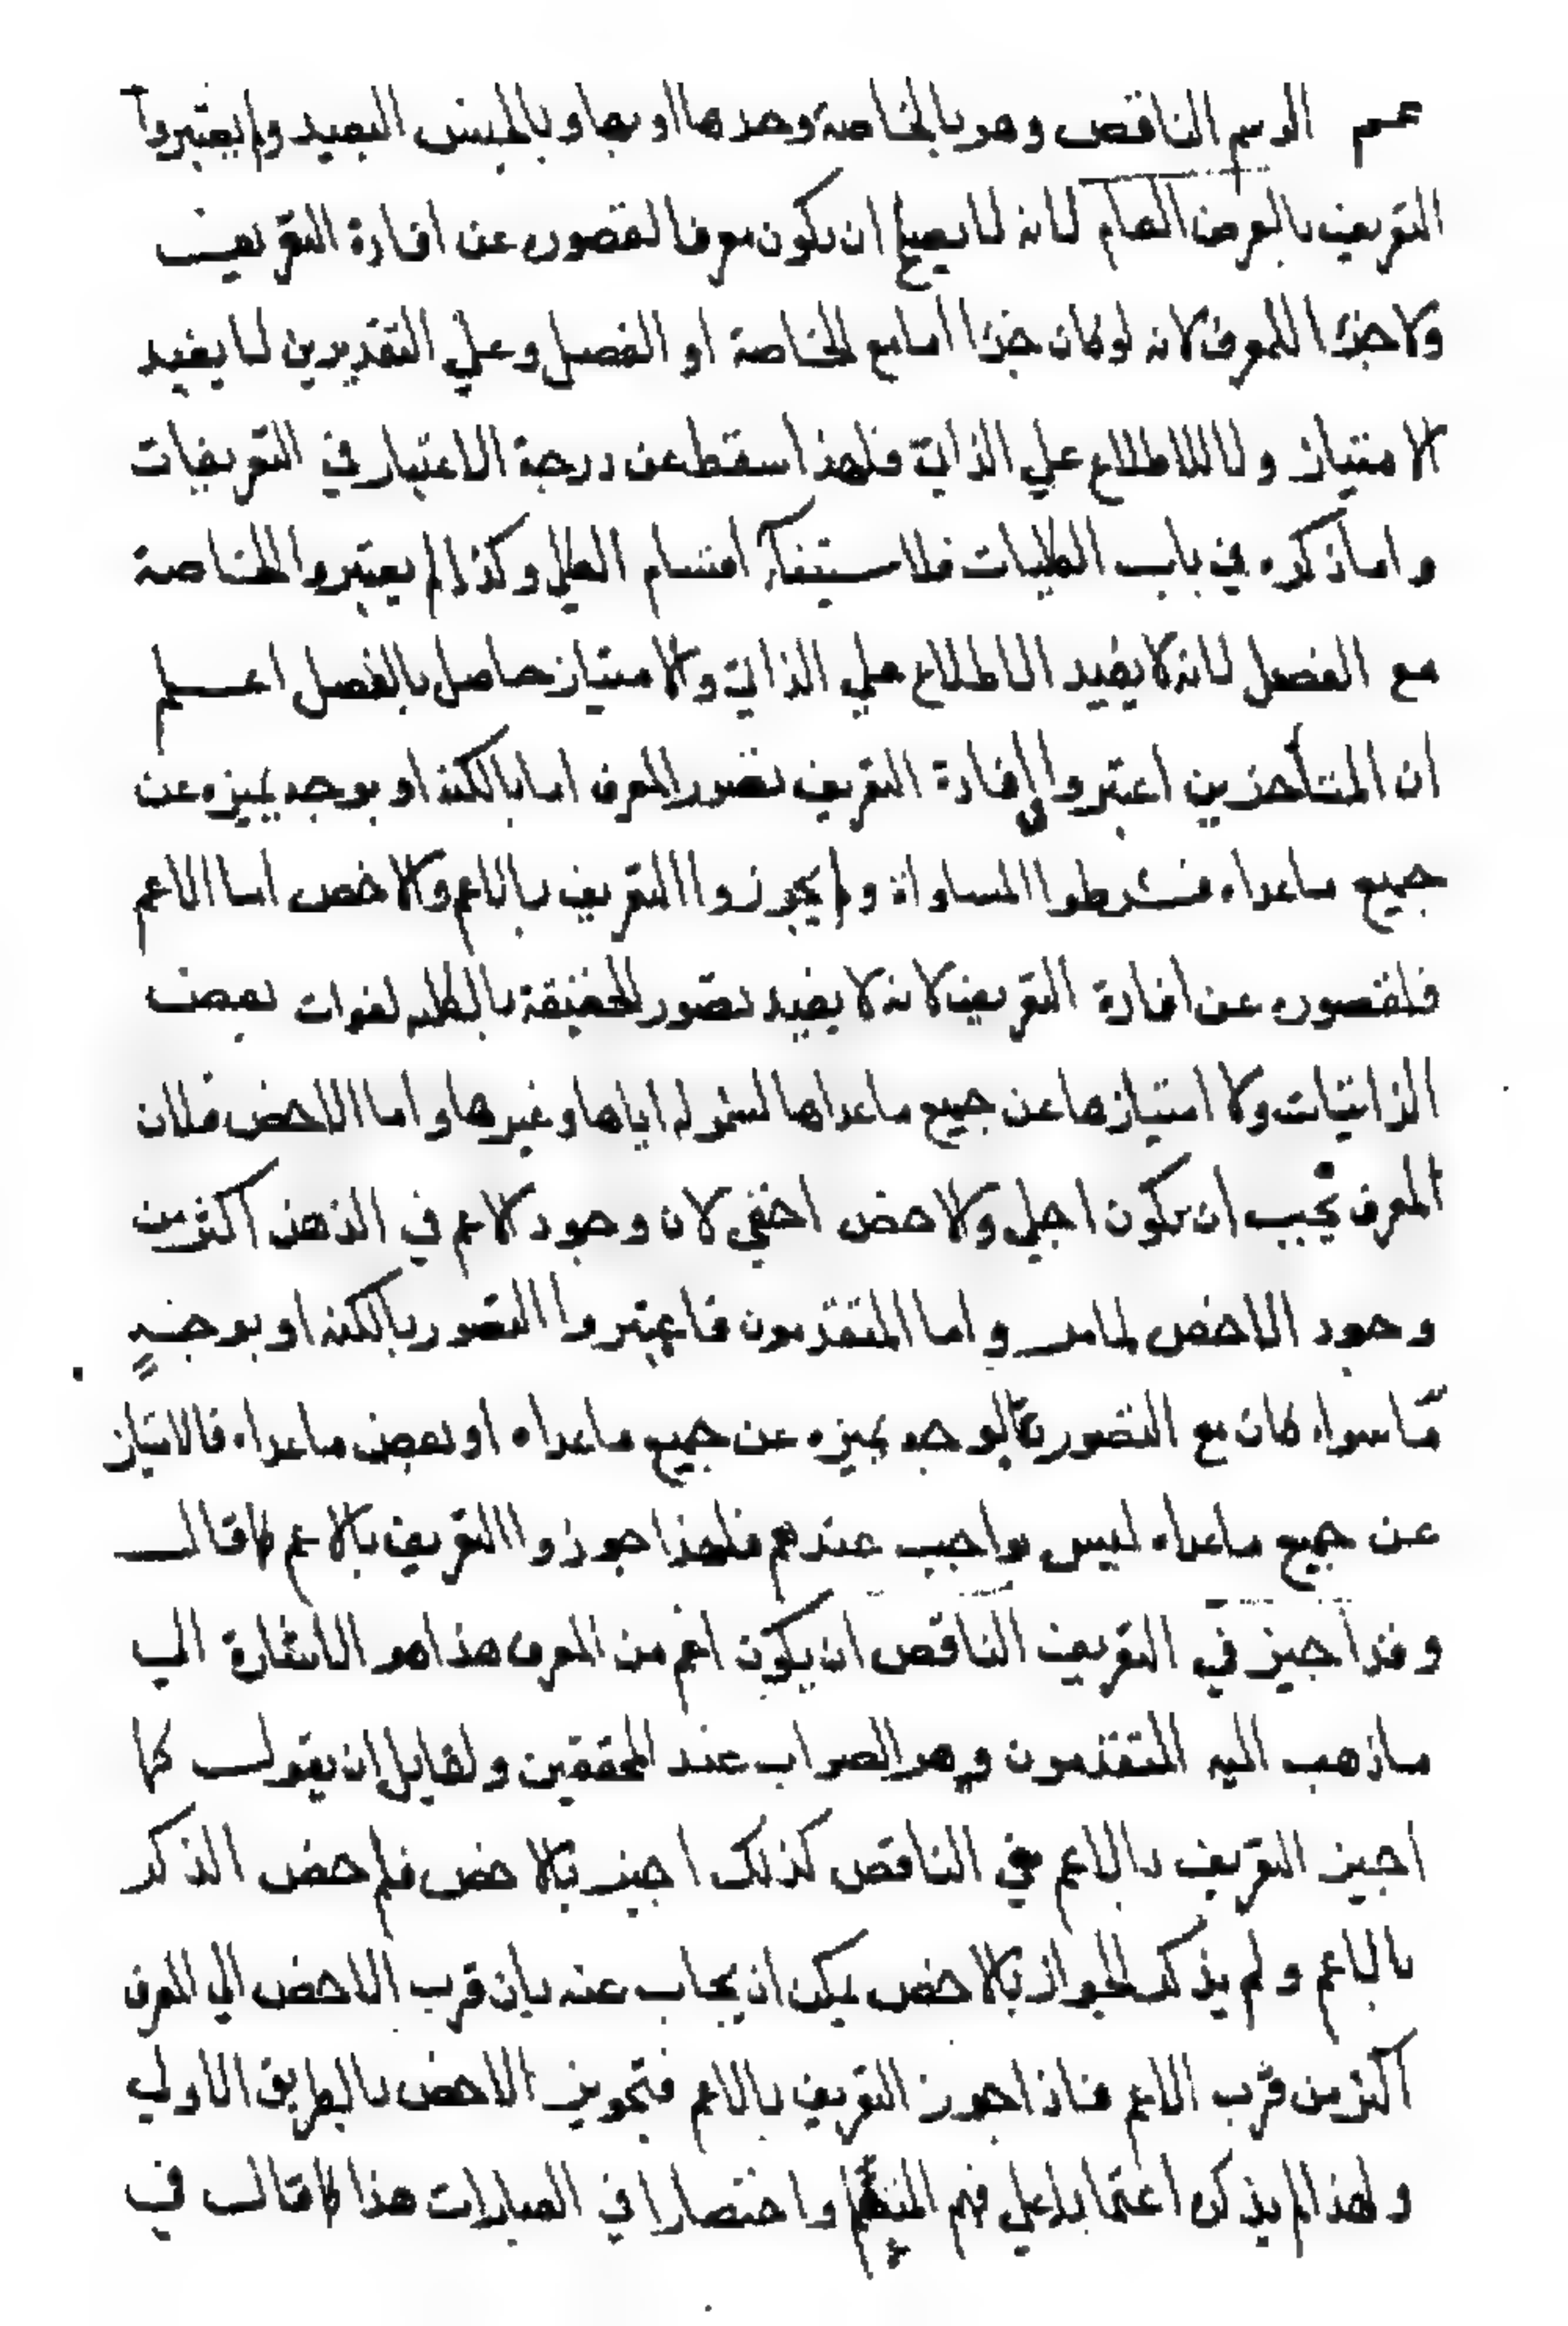 عم الرسم الناقص وهو بالخاصة وحدها او بها و بالجنس البعيد ولم يعتبروا
التعريف بالعرض العام لانه لا يصلح ان يكون معرفا لقصوره عن افادة التعريف
ولا جزأ للمعرف لانه لو كان جزأ اما مع الخاصة او الفصل وعلي التقديرين لا يفيد
الامتياز ولا الاطلاع علي الذاتي فلهذا سقط عن درجة الاعتبار في التعريفات
واما ذكره في باب الكليات فلاستيفآء اقسام الكلي وكذا لم يعتبروا الخاصة
مع الفصل لانه لا يفيد الاطلاع علي الذاتي والامتياز حاصل بالفصل اعلم
ان المتأخرين اعتبروا في افادة التعريف تصور المعرف اما بالكنه او بوجه يميزه عن
جميع ماعداه فشرطوا المساواة ولم يجوزوا التعريف بالاعم والاخص اما الاعم
فلقصوره عن افادة التعريف لانه لا يفيد تصور الحقيقة بالكله لفوات بعض
الذاتيات ولا امتيازها عن جميع ماعداها لشموله اياها وغيرها واما الاخص فلان
المعرف يجب ان يكون اجلي والاخص اخفي لان وجود الاعم في الذهن اكثر من
وجود الاخص لما مر واما المتقدمون فاعتبروا التصور بالكنه او بوجهٍ
مّا سواء كان مع التصور بالوجه يميزه عن جميع ماعداه او بعض ماعداه فالامتياز
عن جميع ماعداه ليس بواجب عندهم فلهذا جوزوا التعريف بالاعم كما قال
وقد اجيز في التعريف الناقص ان يكون اعم من المعرف هذا هو الاشارة الي
ماذهب اليه المتقدمون وهو الصواب عند المحققين ولقايل ان يقول كما
اجيز التعريف بالاعم في الناقص كذلك اجيز بالاخص فلم خص الذكر
بالاعم ولم يذكر الجواز بالاخص يمكن ان يجاب عنه بان قرب الاخص الي المعرف
اكثر من قرب الاعم فاذا جوز التعريف بالاعم فتجويز الاخص بالطريق الاولي
ولهذا لم يذكره اعتمادا علي فهم المتعلم واختصارا في العبارات هذا كما قال في